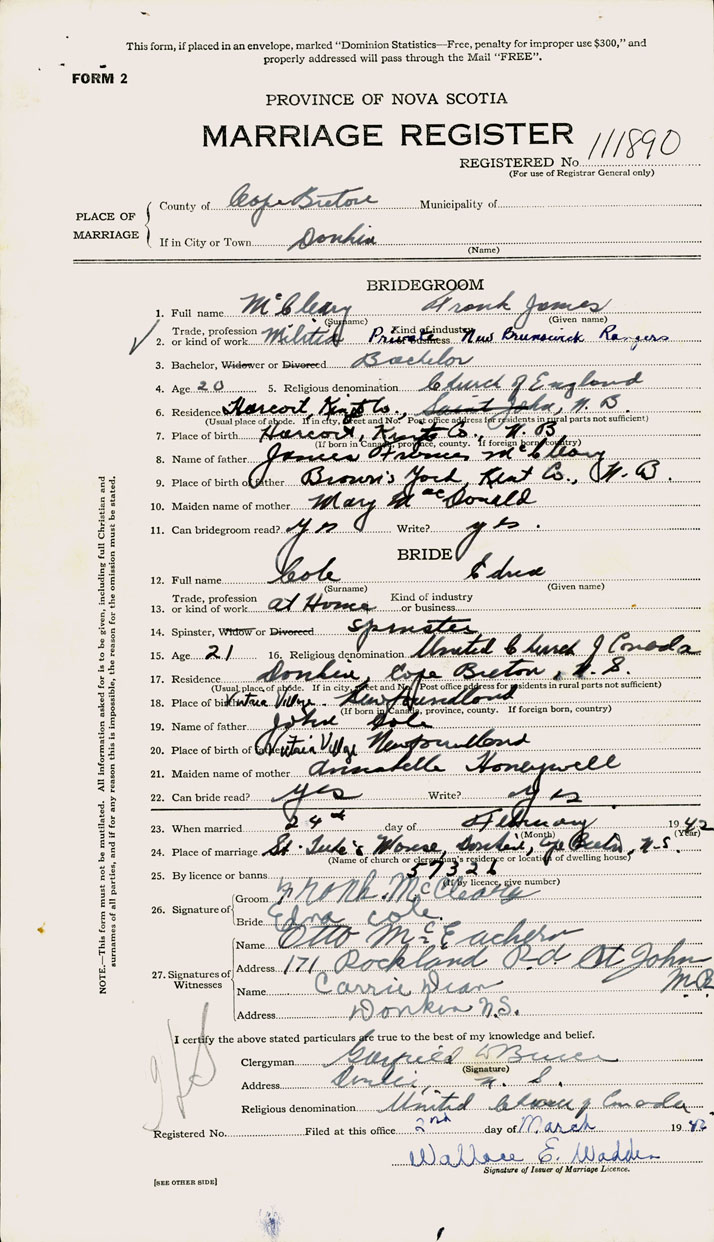 This form, if placed in an envelope, marked "Dominion Statistics—Free, penalty for improper use $300," and
properly addressed will pass through the Mail "FREE".
FORM 2
PROVINCE OF NOVA SCOTIA
MARRIAGE REGISTER
REGISTERED No. 111890
(For use of Registrar General only)
PLACE OF MARRIAGE
County of Cape Breton Municipality of
If in City or Town Donkin
(Name)
BRIDEGROOM
1. Full name McCleary Frank James
(Surname) (Given name)
2. Trade, profession or kind of work Militia Kind of industry or business Private New Brunswick Rangers
3. Bachelor, Widower or Divorced Bachelor
4. Age 20 5. Religious denomination Church of England
6. Residence Harcourt, Kent Co., Saint John, N. B.
(Usual place of abode. If in city, street and No. Post office address for residents in rural parts not sufficient)
7. Place of birth Harcourt, Kent Co., N. B
(If born in Canada, province, county. If foreign born, country)
8. Name of father James McCleary
9. Place of birth of father Brown's Yard, Kent Co., N. B.
10. Maiden name of mother Mary MacDonald
11. Can bridegroom read? yes Write? yes.
BRIDE
12. Full name Cole Edna
(Surname) (Given name)
13. Trade, profession or kind of work at Home Kind of industry or business
14. Spinster, Widow or Divorced Spinster
15. Age 21 16. Religious denomination United Church of Canada
17. Residence Donkin, Cape Breton, N. S.
(Usual place of abode. If in city, street and No. Post office address for residents in rural parts not sufficient)
18. Place of birth Village Newfoundland
(If born in Canada, province, county. If foreign born, country)
19. Name of father John Cole
20. Place of birth of father Village Newfoundland
21. Maiden name of mother Annabelle Honeywell
22. Can bride read? yes Write? yes
23. When married 24th day of February 1942
(Month) (Year)
24. Place of marriage St. Luke's Manse, Donkin, Cape Breton, N.S.
(Name of church or clergyman's residence or location of dwelling house)
25. By licence or banns 57326
(If by licence, give number)
26. Signature of
Groom Frank McCleary
Bride Edna Cole.
27. Signatures of Witnesses
Name Otto McEachern
Address 171 Rockland Rd St John N.B.
Name Carrie Dean
Address Donkin N.S.
I certify the above stated particulars are true to the best of my knowledge and belief.
Clergyman Garfield Bruce
(Signature)
Address Donkin, N. S.
Religious denomination United Church of Canada
Registered No. Filed at this office 2nd day of March 1942
Wallace E. Wadden
Signature of Issuer of Marriage Licence.
[SEE OTHER SIDE]
NOTE.—This form must not be mutilated. All information asked for is to be given, including full Christian and
surnames of all parties, and if for any reason this is impossible, the reason for the omission must be stated.